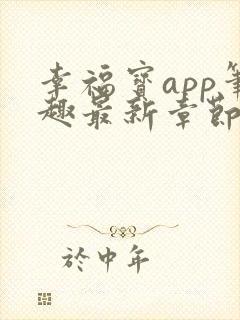 幸福寶app筆
趣最新章節
於中年